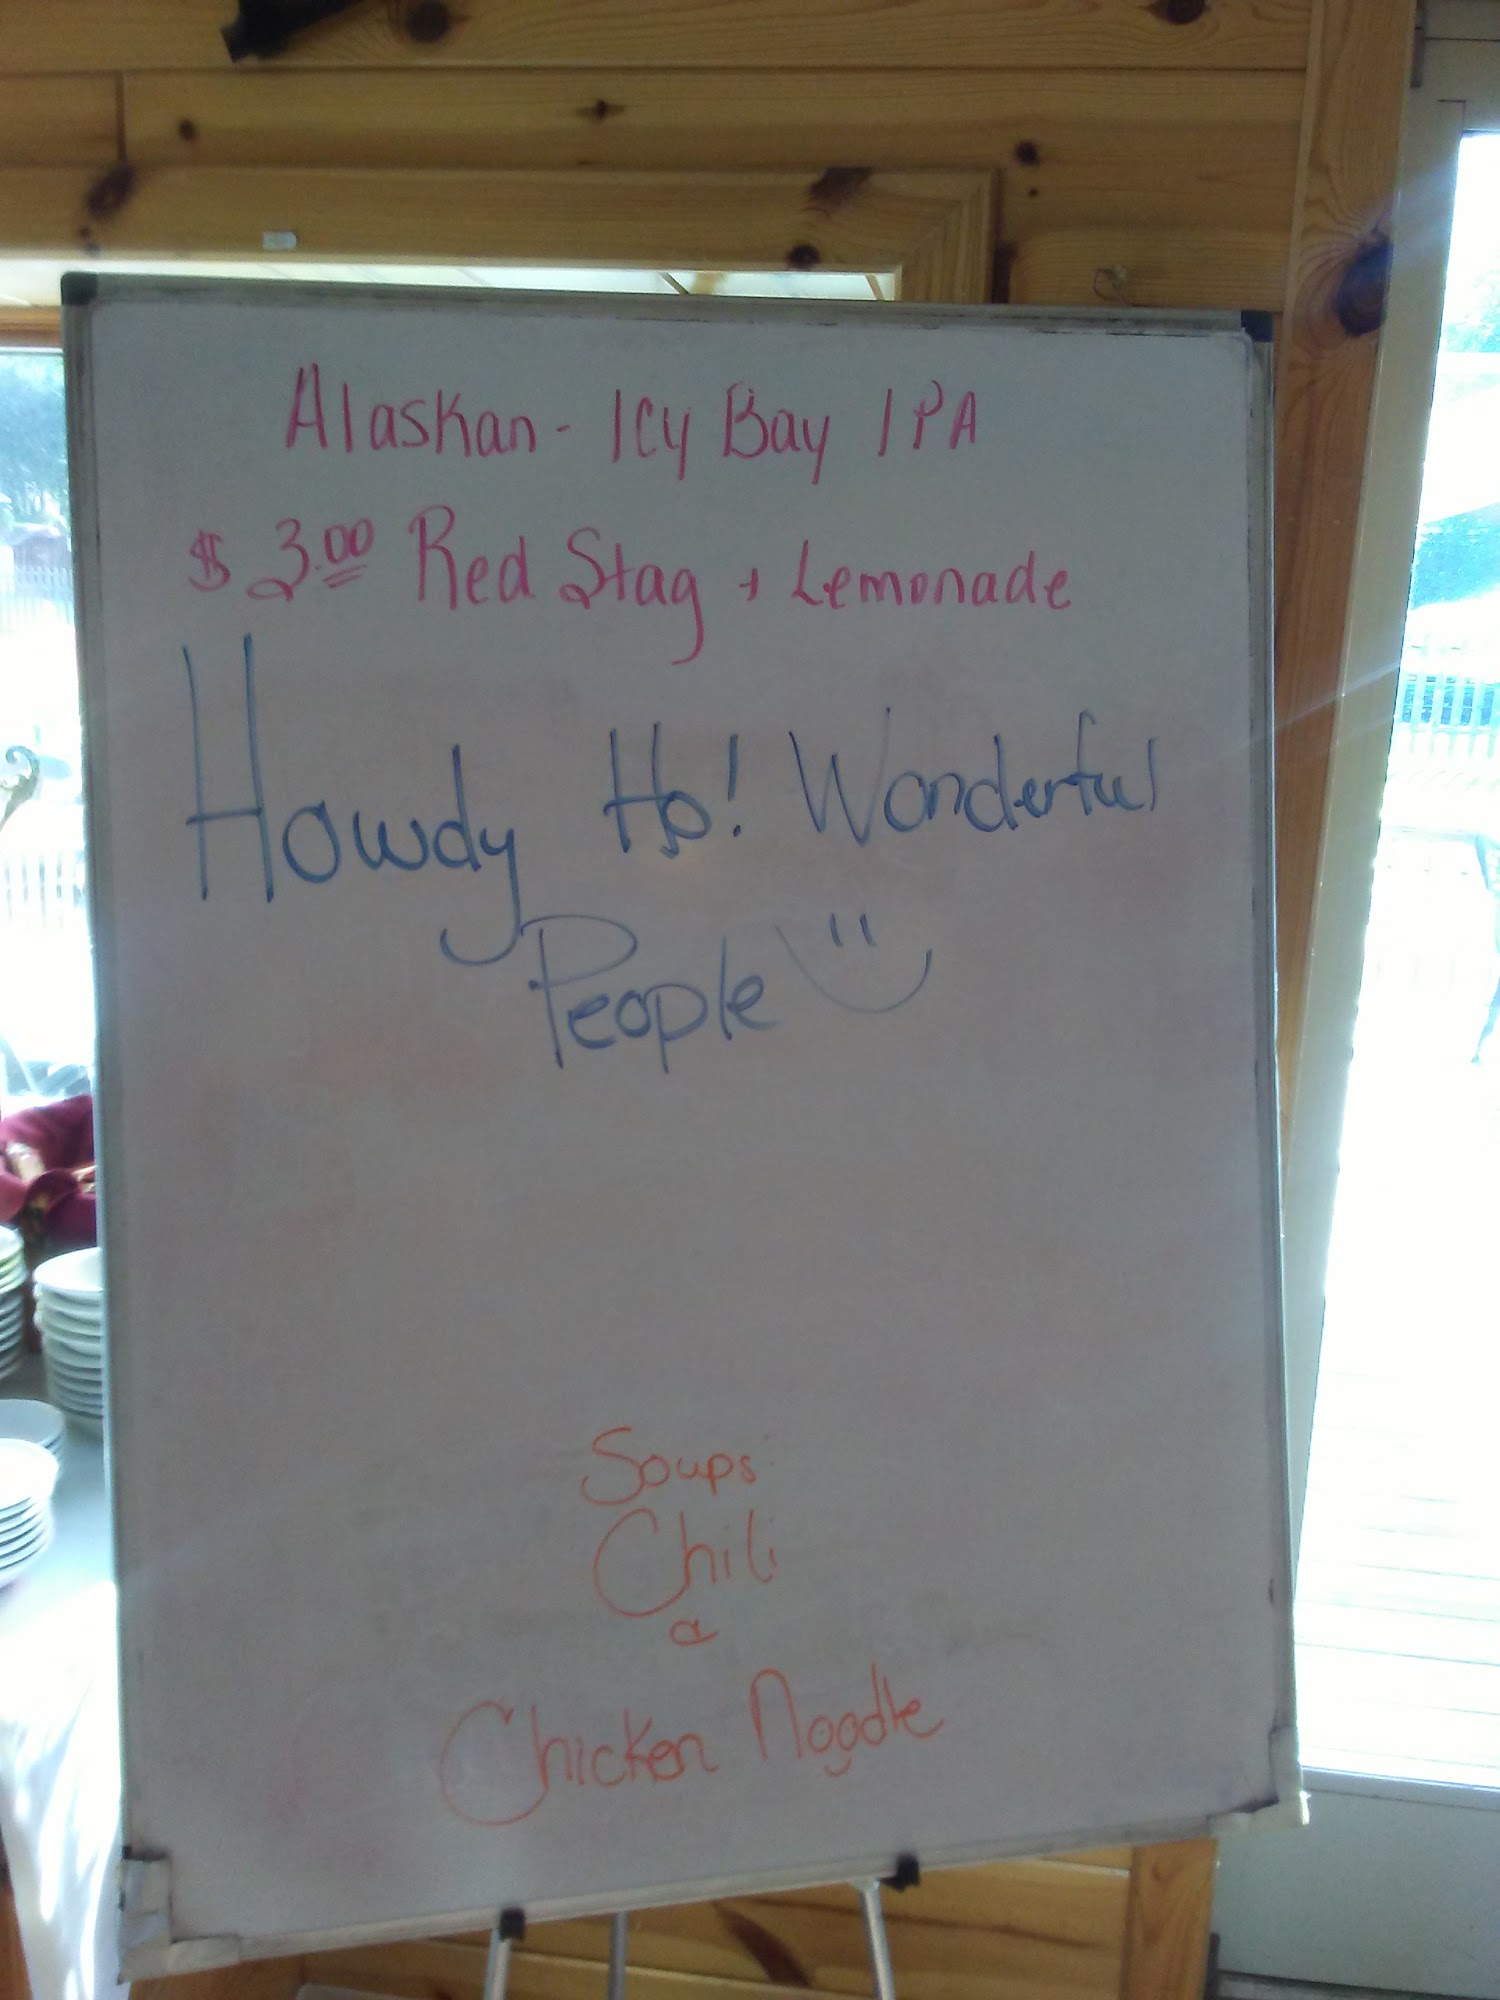 Alaskan - Icy Bay IPA
$3.00 Red Stag + Lemonade
Howdy Ho! Wonderful
People
Soups
Chili
&
Chicken Noodle